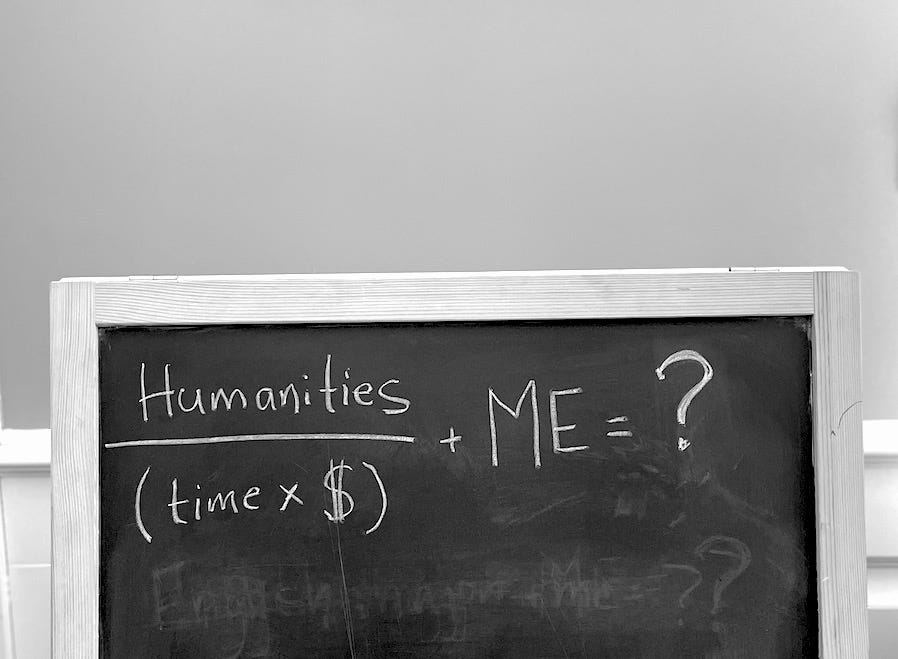 Humanities
(time x $)
+ ME = ?
Me = ??